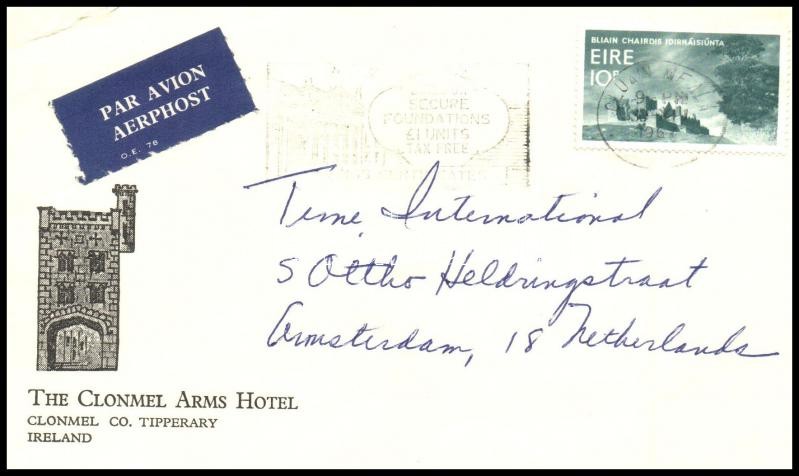 PAR AVION
AERPHOST
O.E. 78
SECURE
FOUNDATIONS
£1 UNITS
TAX FREE
BLIAIN CHAIRDIS IDIRNÁISIÚNTA
EIRE
10P
CLUAIN MEALA
9 - PM
196
Time International
5 Ottho Heldringstraat
Amsterdam, 18 Netherlands
THE CLONMEL ARMS HOTEL
CLONMEL CO. TIPPERARY
IRELAND